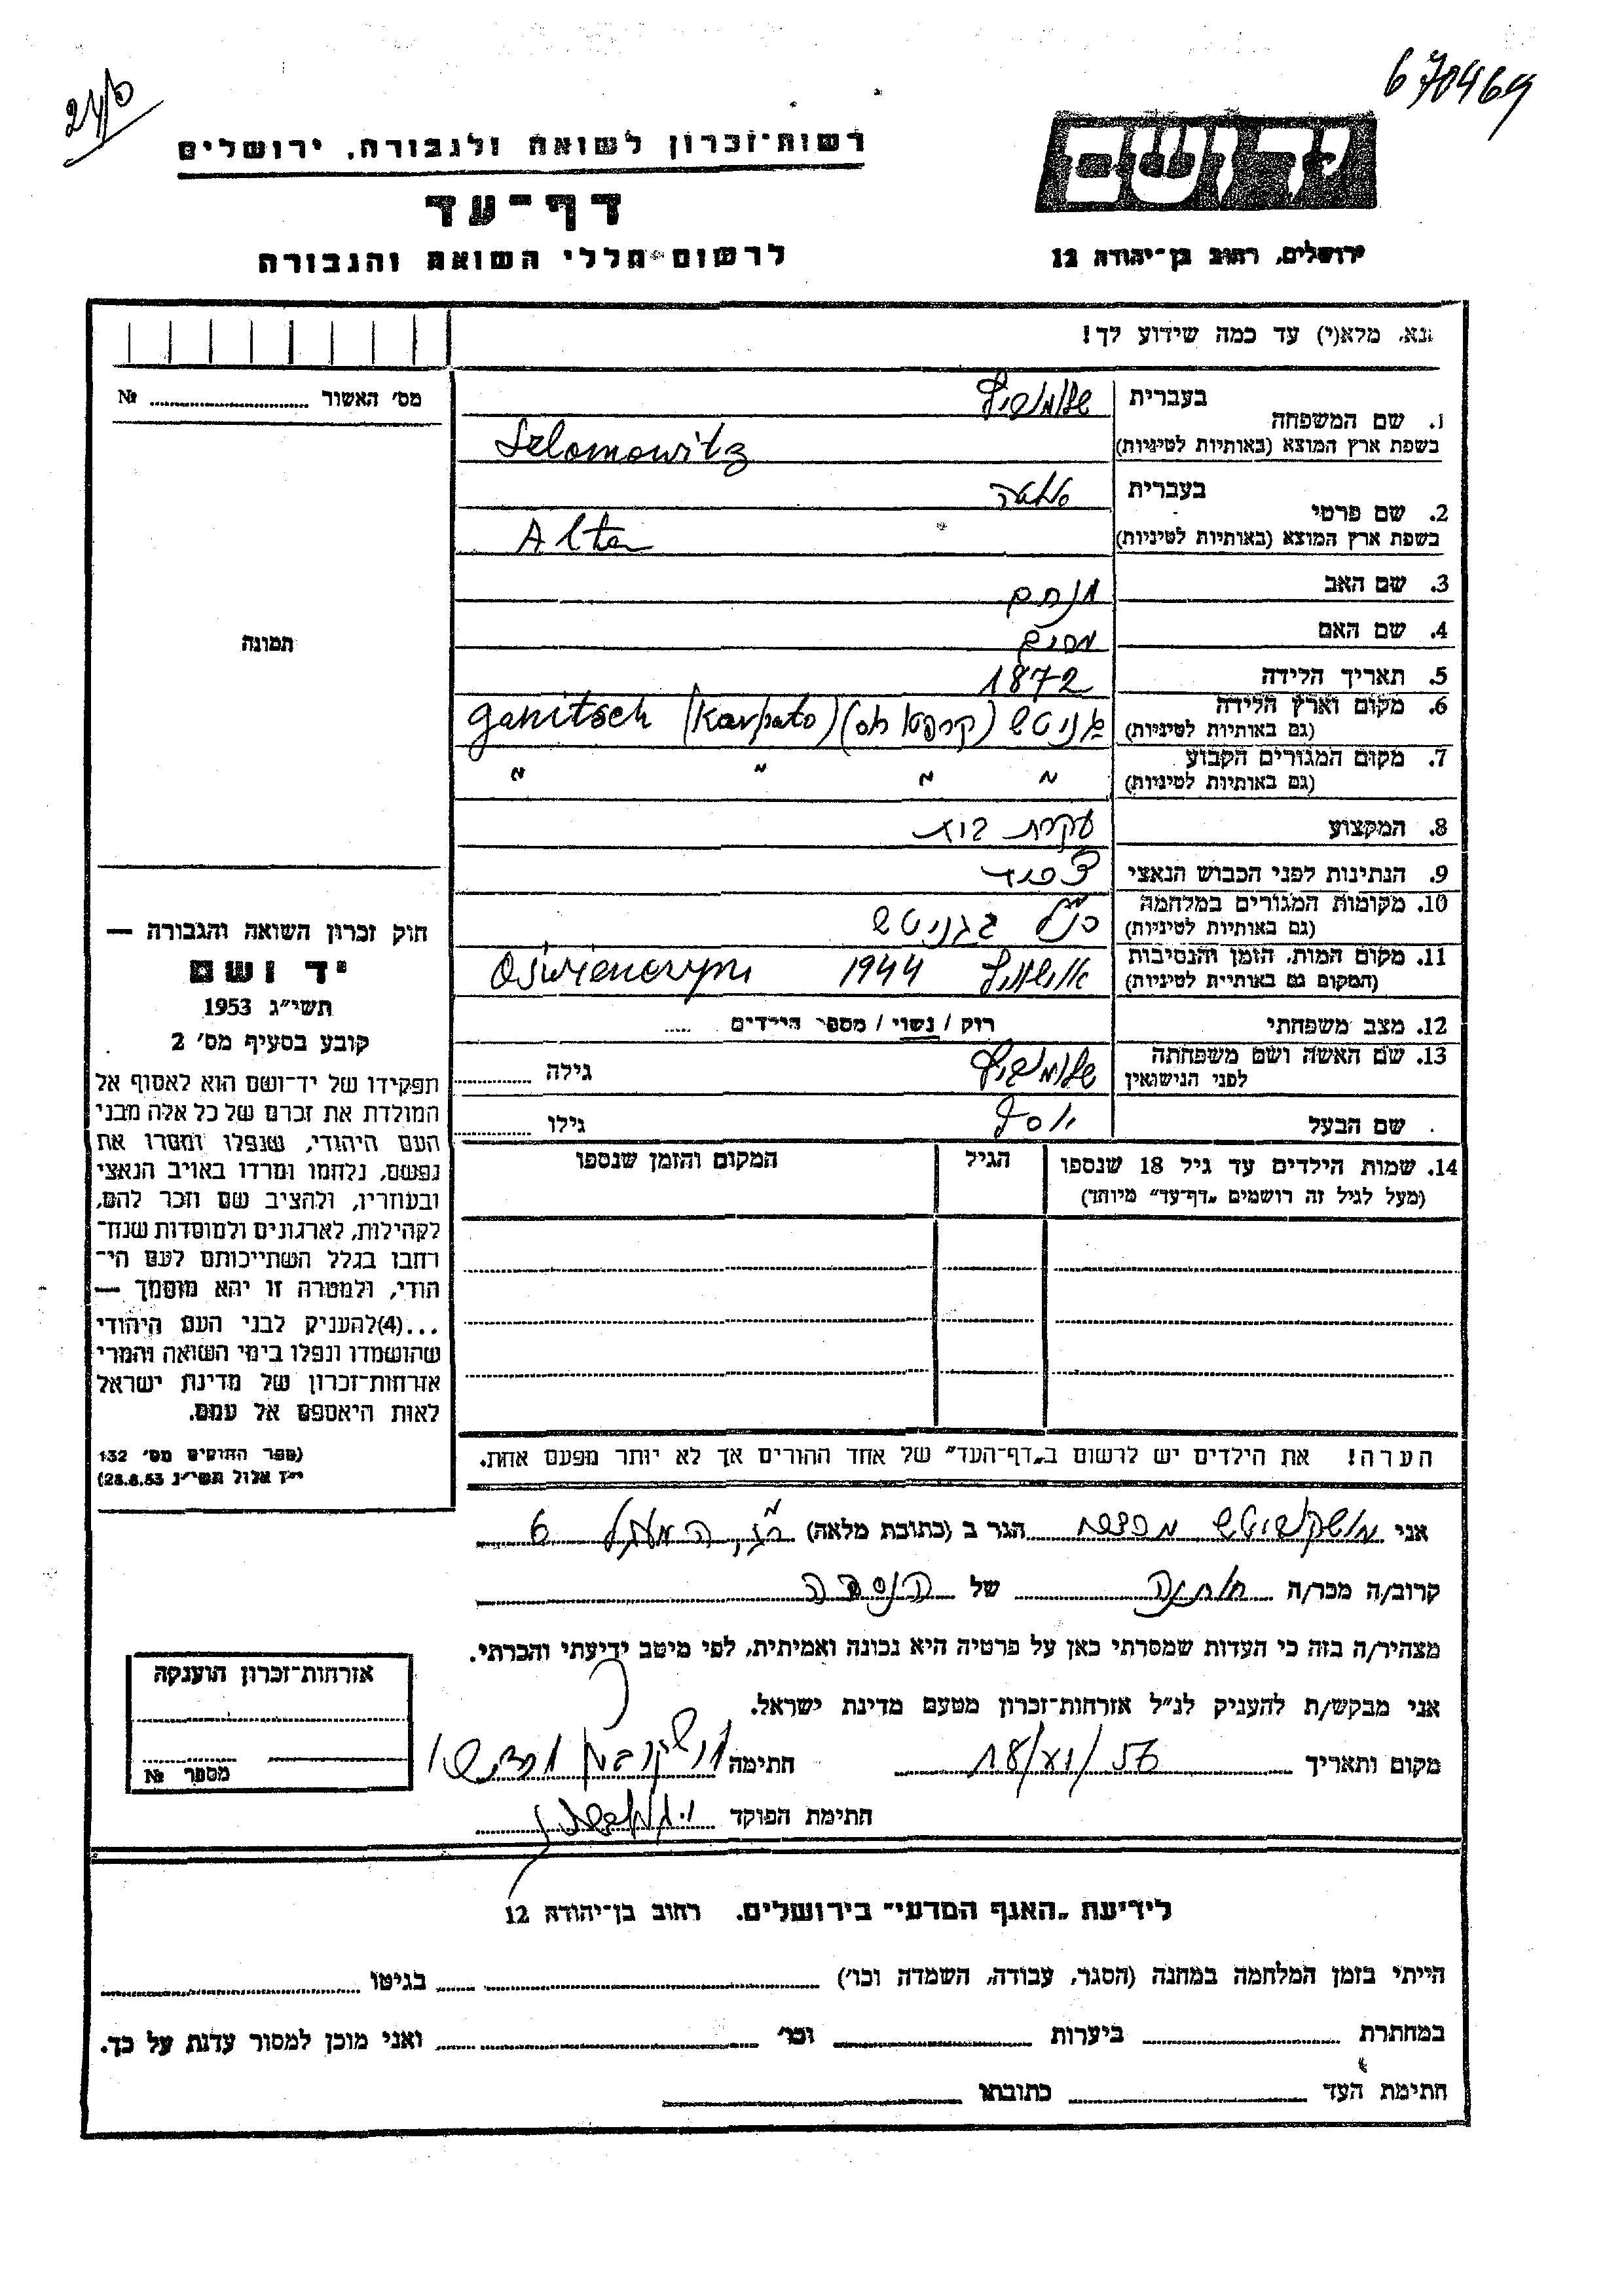 670469
רשות־זכרון לשואה ולגבורה, ירושלים
יד ושם
דף־עד
לרשום חללי השואה והגבורה
ירושלים, רחוב בן־יהודה 12
נא, מלא(י) עד כמה שידוע לך!
מס' האשור № ............
1. שם המשפחה בעברית שלומוביץ
בשפת ארץ המוצא (באותיות לטיניות) Selomowitz
2. שם פרטי בעברית אלטה
בשפת ארץ המוצא (באותיות לטיניות) Alta
3. שם האב מנחם
4. שם האם מרים
5. תאריך הלידה 1872
6. מקום וארץ הלידה (גם באותיות לטיניות) גניטש (קרפטו רוס) Ganitsch (Karpato)
7. מקום המגורים הקבוע (גם באותיות לטיניות) " " " "
8. המקצוע עקרת בית
9. הנתינות לפני הכבוש הנאצי
10. מקומות המגורים במלחמה (גם באותיות לטיניות) כנ"ל בגניטש
11. מקום המות, הזמן והנסיבות (המקום גם באותיות לטיניות) אושוויץ 1944
12. מצב משפחתי רוק / נשוי / מספר הילדים .....
13. שם האשה ושם משפחתה לפני הנישואין שלומוביץ גילה ............
שם הבעל יוסף גילו ............
14. שמות הילדים עד גיל 18 שנספו
(מעל לגיל זה רושמים „דף־עד" מיוחד)
הגיל
המקום והזמן שנספו
תמונה
חוק זכרון השואה והגבורה —
יד ושם
תשי"ג 1953
קובע בסעיף מס' 2
תפקידו של יד־ושם הוא לאסוף אל
המולדת את זכרם של כל אלה מבני
העם היהודי, שנפלו ומסרו את
נפשם, נלחמו ומרדו באויב הנאצי
ובעוזריו, ולהציב שם וזכר להם,
לקהילות, לארגונים ולמוסדות שנח־
רבו בגלל השתייכותם לעם הי־
הודי, ולמטרה זו יהא מוסמך —
...(4)להעניק לבני העם היהודי
שהושמדו ונפלו בימי השואה והמרי
אזרחות־זכרון של מדינת ישראל
לאות היאספם אל עמם.
(ספר החוקים מס' 132
י"ז אלול תשי"ג 28.8.53)
הערה! את הילדים יש לרשום ב„דף־העד" של אחד ההורים אך לא יותר מפעם אחת.
אני הגר ב (כתובת מלאה) 6
קרוב/ה מכר/ה של הנספה
מצהיר/ה בזה כי העדות שמסרתי כאן על פרטיה היא נכונה ואמיתית, לפי מיטב ידיעתי והכרתי.
אני מבקש/ת להעניק לנ"ל אזרחות־זכרון מטעם מדינת ישראל.
מקום ותאריך 18/VI/56 חתימה
חתימת הפוקד
אזרחות־זכרון הוענקה
מספר №
לידיעת „האגף המדעי" בירושלים. רחוב בן־יהודה 12
הייתי בזמן המלחמה במחנה (הסגר, עבודה, השמדה וכו') בגיטו
במחתרת ביערות וכו' ואני מוכן למסור עדות על כך.
חתימת העד כתובתו